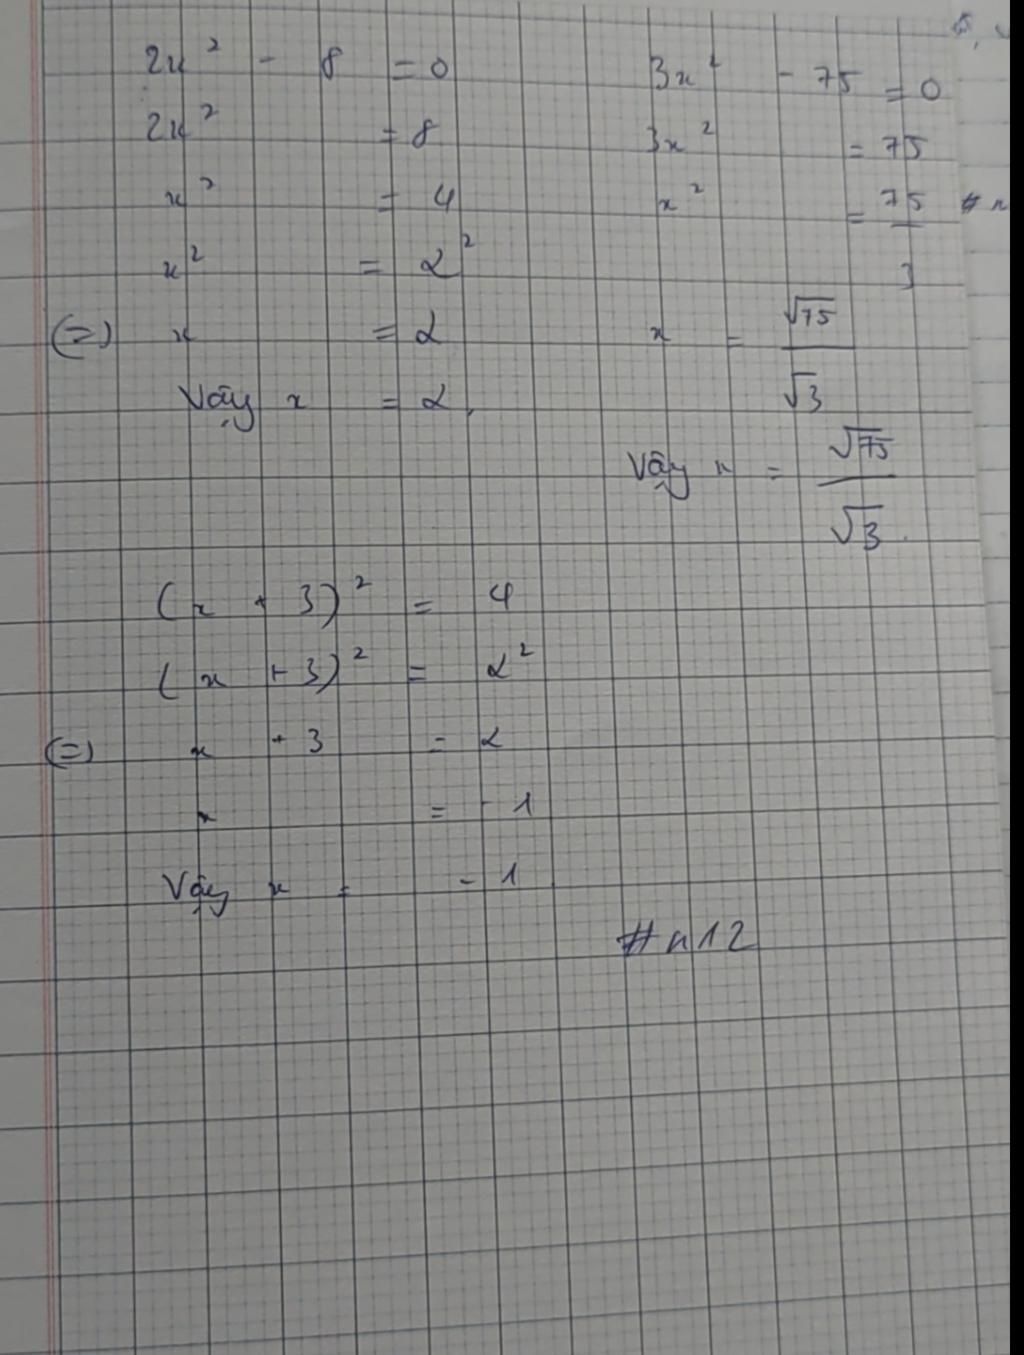 2x² - 8 = 0
2x² = 8
x² = 4
x² = 2²
(=) x = 2
Vậy x = 2.
3x² - 75 = 0
3x² = 75
x² = 75/3
x = √75/√3
Vậy x = √75/√3.
(x + 3)² = 4
(x + 3)² = 2²
(=) x + 3 = 2
x = - 1
Vậy x = - 1
#n12